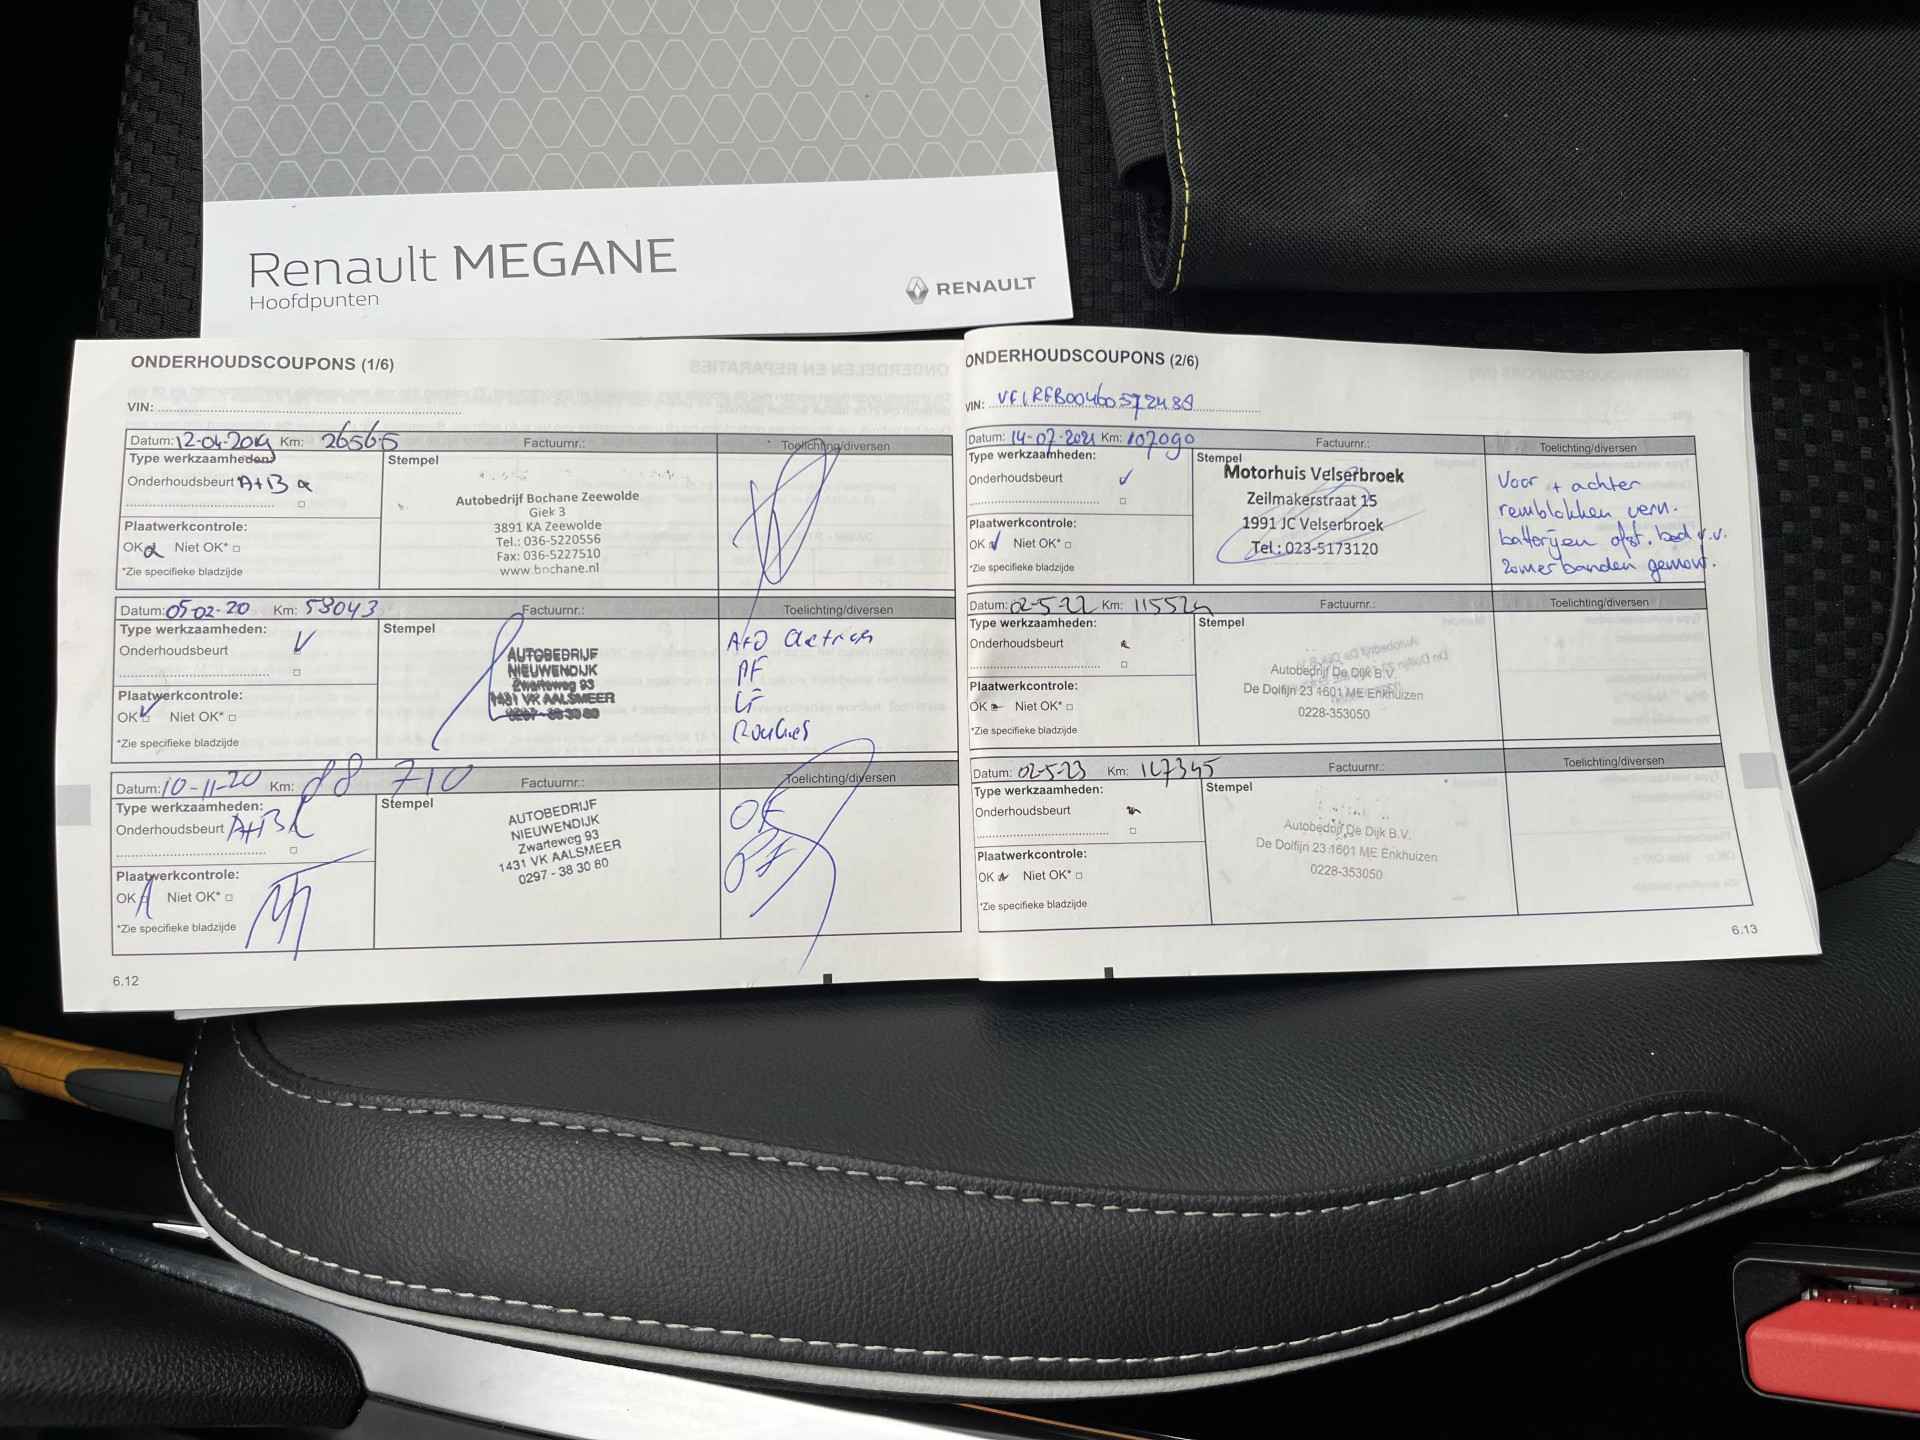 Renault MEGANE
Hoofdpunten
RENAULT
ONDERHOUDSCOUPONS (1/6)
VIN:
Datum: 12-04-2019 Km: 26565 Factuurnr.: Toelichting/diversen
Type werkzaamheden:
Stempel
Onderhoudsbeurt A+B
Autobedrijf Bochane Zeewolde
Giek 3
3891 KA Zeewolde
Tel.: 036-5220556
Fax: 036-5227510
www.bochane.nl
Plaatwerkcontrole:
OK Niet OK*
*Zie specifieke bladzijde
Datum: 05-02-20 Km: 58043 Factuurnr.: Toelichting/diversen
Type werkzaamheden:
Stempel
Onderhoudsbeurt
AUTOBEDRIJF
NIEUWENDIJK
Zwarteweg 93
1431 VK AALSMEER
0297 - 38 30 80
Plaatwerkcontrole:
OK Niet OK*
*Zie specifieke bladzijde
Datum: 10-11-20 Km: 88 710 Factuurnr.: Toelichting/diversen
Type werkzaamheden:
Stempel
Onderhoudsbeurt A+B
AUTOBEDRIJF
NIEUWENDIJK
Zwarteweg 93
1431 VK AALSMEER
0297 - 38 30 80
Plaatwerkcontrole:
OK Niet OK*
*Zie specifieke bladzijde
6.12
ONDERHOUDSCOUPONS (2/6)
VIN: VF1RFB00460572489
Datum: 14-07-2021 Km: 107090 Factuurnr.: Toelichting/diversen
Type werkzaamheden:
Stempel
Onderhoudsbeurt
Motorhuis Velserbroek
Zeilmakerstraat 15
1991 JC Velserbroek
Tel.: 023-5173120
Voor + achter
remblokken vern.
batterijen afst. bed v.v.
zomerbanden gemont.
Plaatwerkcontrole:
OK Niet OK*
*Zie specifieke bladzijde
Datum: 02-5-22 Km: Factuurnr.: Toelichting/diversen
Type werkzaamheden:
Stempel
Onderhoudsbeurt
Autobedrijf De Dijk B.V.
De Dolfijn 23 1601 ME Enkhuizen
0228-353050
Plaatwerkcontrole:
OK Niet OK*
*Zie specifieke bladzijde
Datum: 02-5-23 Km: Factuurnr.: Toelichting/diversen
Type werkzaamheden:
Stempel
Onderhoudsbeurt
Autobedrijf De Dijk B.V.
De Dolfijn 23 1601 ME Enkhuizen
0228-353050
Plaatwerkcontrole:
OK Niet OK*
*Zie specifieke bladzijde
6.13